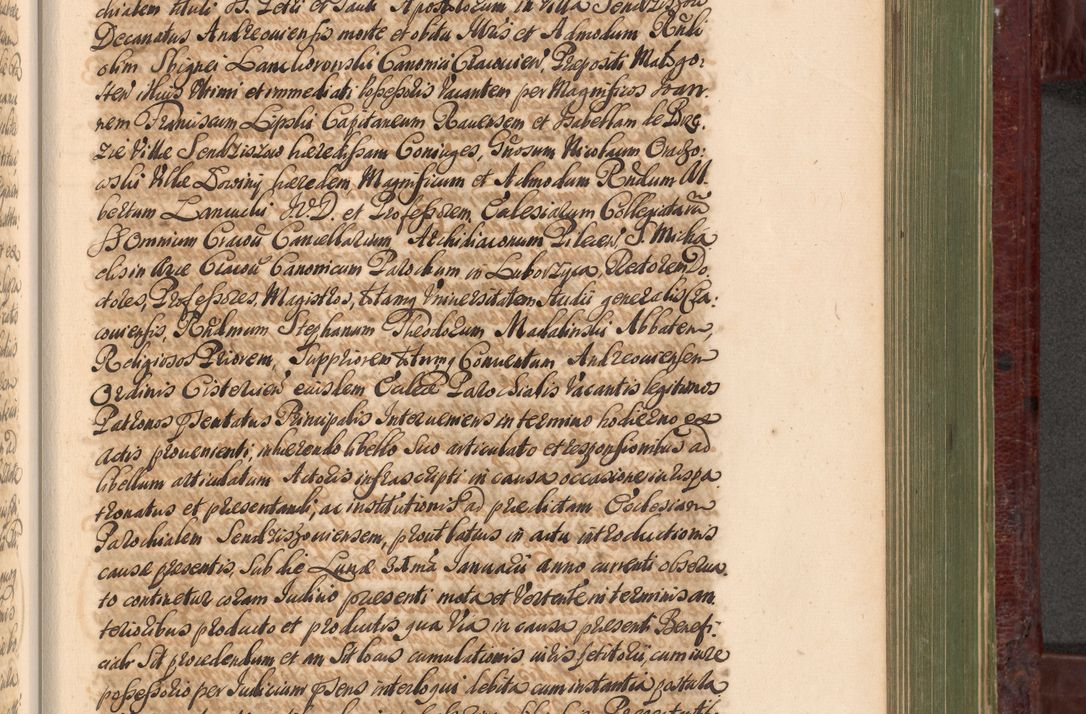 chialem tituli SS. Petri et Pauli Apostolorum in Villa Sendziszow
Decanatus Andreouiensis morte et obitu Illris et Admodum Rndi
olim Spignei Lanchoronski Canonici Cracouien, Praepositi Malogo-
sten illius Vltimi et immediati Possessoris Vacantem per Magnificos Joan-
nem Franciscum Lipski Capitaneum Rauensem et Isabellam de
Villae Sendziszow haeredissam Coniuges, Gnosum Nicolaum
Villae haeredem, Magnificum et Admodum Rndum Al-
bertum Lancucki J.V.D. et Professorem, Ecclesiarum Collegiatarū
SS Omnium Cracou Cancellarium, Archidiaconum Pilcien, S. Micha
elis in Arce Cracou Canonicum Parochum in Luborzyca, Rectorem Do-
ctores, Professores, Magistros, totamq Vniuersitatem Studij generalis Cra-
couiensis, Rndmum Stephanum Theodorum Madalinski Abbatem,
Religiosos Priorem, Suppriorem totumq Conuentum Andreouiensem
Ordinis Cistercien eiusdem Eccliae Parochialis Vacantis legitimos
Patronos psentatus Principalis Interueniens in termino hodierno ex
actis proueniente, inhaerendo libello suo articulato et responsionibus ad
libellum articulatum Actoris infrascripti in causa occasione iurispa
tronatus et praesentandi, ac institutionis ad praedictam Ecclesiam
Parochialem Sendziszouiensem, prout latius in actu introductionis
causae praesentis, sub die Lunae 31ma Januarii anno currenti obserua
to continetur coram Iudicio praesenti mota et Vertente in terminis an
terioribus producto et productis qua Via in causa praesenti Benefi-
ciali sit procedendum, et an sit locus cumulationis iuris petitorij cum iure
possessorio per Iudicium psens interloqui debita cum instantia postula